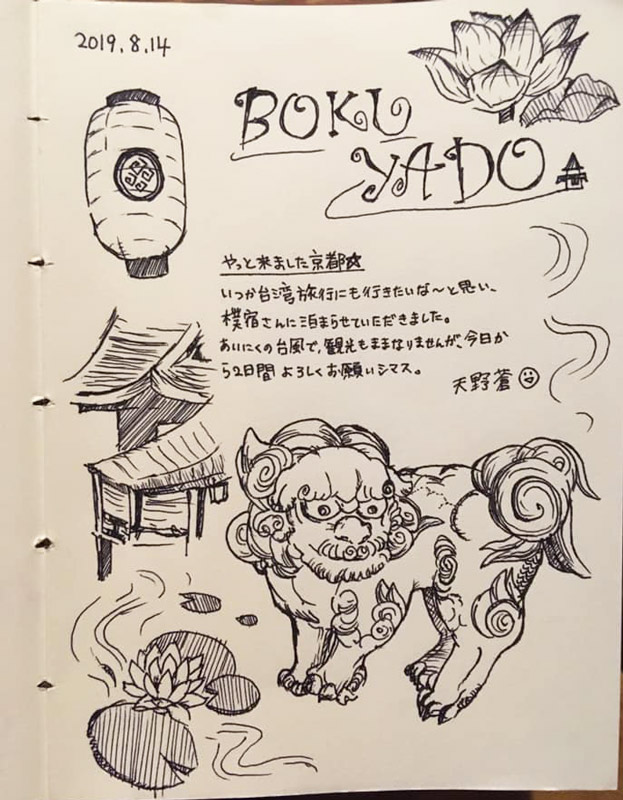 2019.8.14
BOKU
YADO
やっと来ました京都☆
いつか台湾旅行にも行きたいな〜と思い、
樸宿さんに泊まらせていただきました。
あいにくの台風で、観光もままなりませんが、今日か
ら2日間 よろしくお願いシマス。
天野蒼